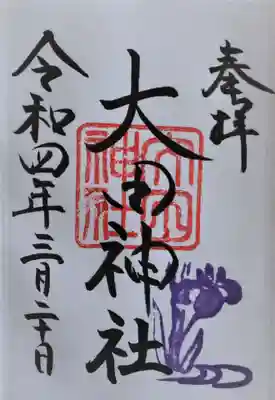 奉拝
大田神社
大田神社
令和四年三月二十日